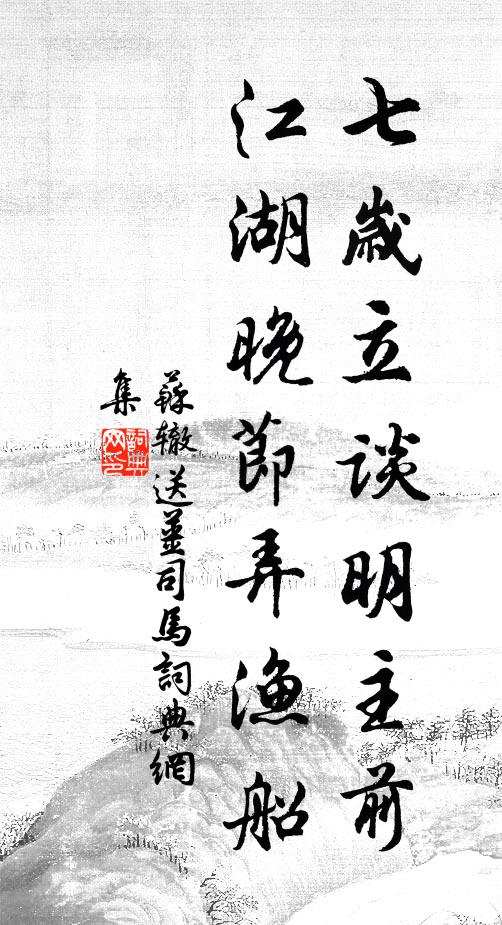 七歲立談明主前
江湖晚節弄漁船
蘇轍送姜司馬詞典網
集
詞典網印